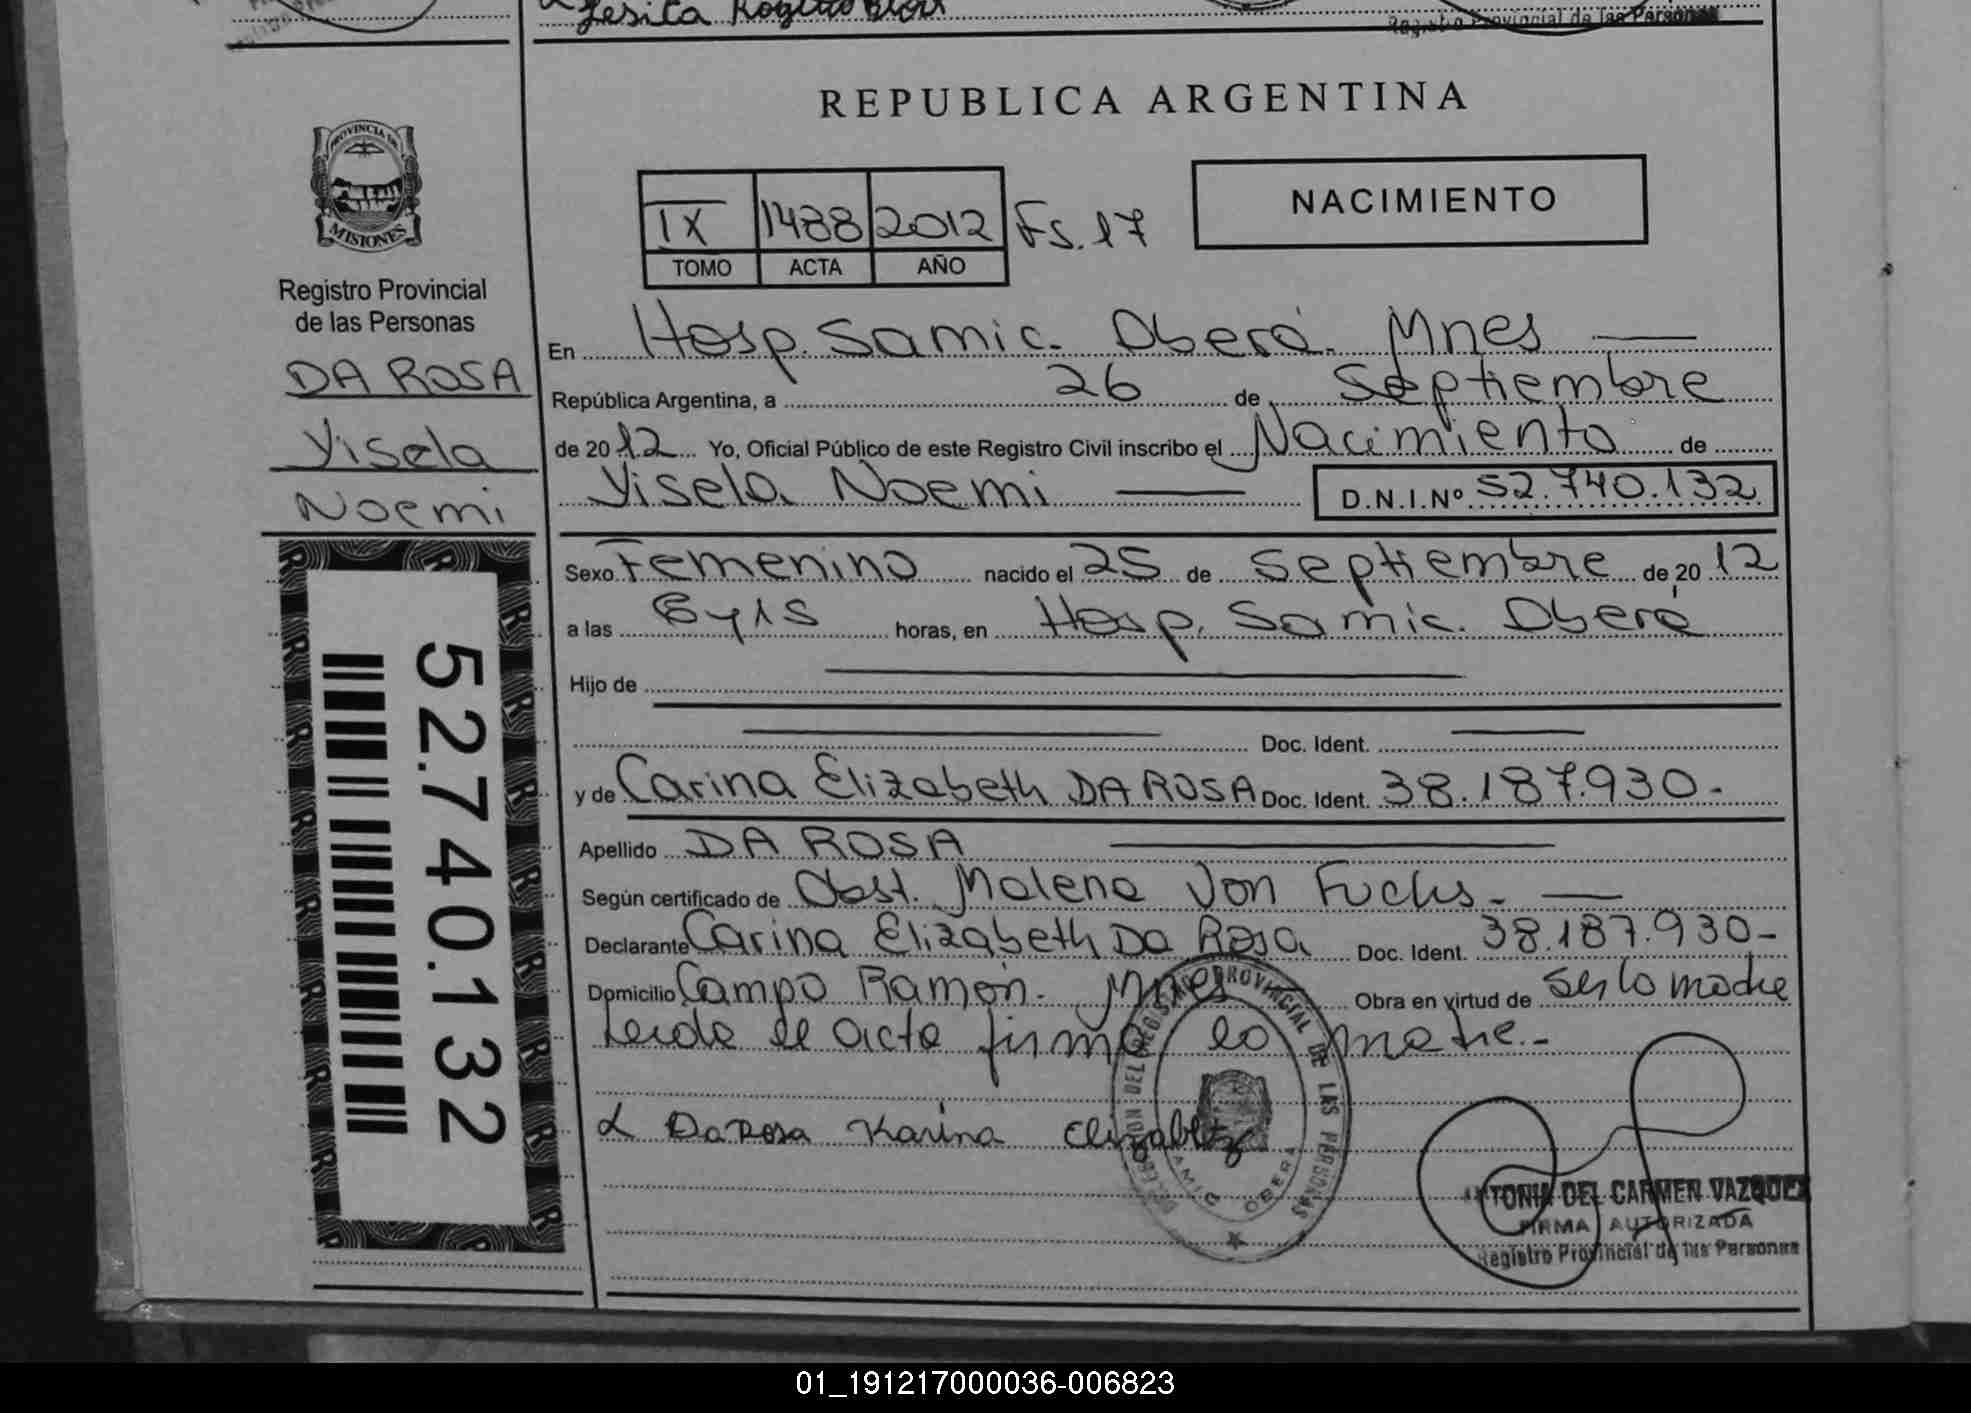 Jesica
Registro Provincial de las Personas
REPUBLICA ARGENTINA
PROVINCIA DE
MISIONES
Registro Provincial
de las Personas
DA ROSA
Yisela
Noemi
52.740.132
IX 1488 2012 Fs. 17
TOMO ACTA AÑO
NACIMIENTO
En Hosp. Samic. Oberá. Mnes
República Argentina, a 26 de Septiembre
de 2012 Yo, Oficial Público de este Registro Civil inscribo el Nacimiento de
Yisela Noemi D.N.I.Nº 52.740.132
Sexo Femenino nacido el 25 de Septiembre de 2012
a las 6y15 horas, en Hosp. Samic. Oberá
Hijo de
Doc. Ident.
y de Carina Elizabeth DA ROSA Doc. Ident. 38.187.930.-
Apellido DA ROSA
Según certificado de Obst. Malena Von Fuchs.-
Declarante Carina Elizabeth Da Rosa Doc. Ident. 38.187.930-
Domicilio Campo Ramón. Mnes Obra en virtud de ser la madre
Leida el acta firma la madre.-
Da Rosa Karina Elizabeth
DELEGACION DEL REGISTRO PROVINCIAL DE LAS PERSONAS
SAMIC OBERA
ANTONIA DEL CARMEN VAZQUEZ
FIRMA AUTORIZADA
Registro Provincial de las Personas
01_191217000036-006823